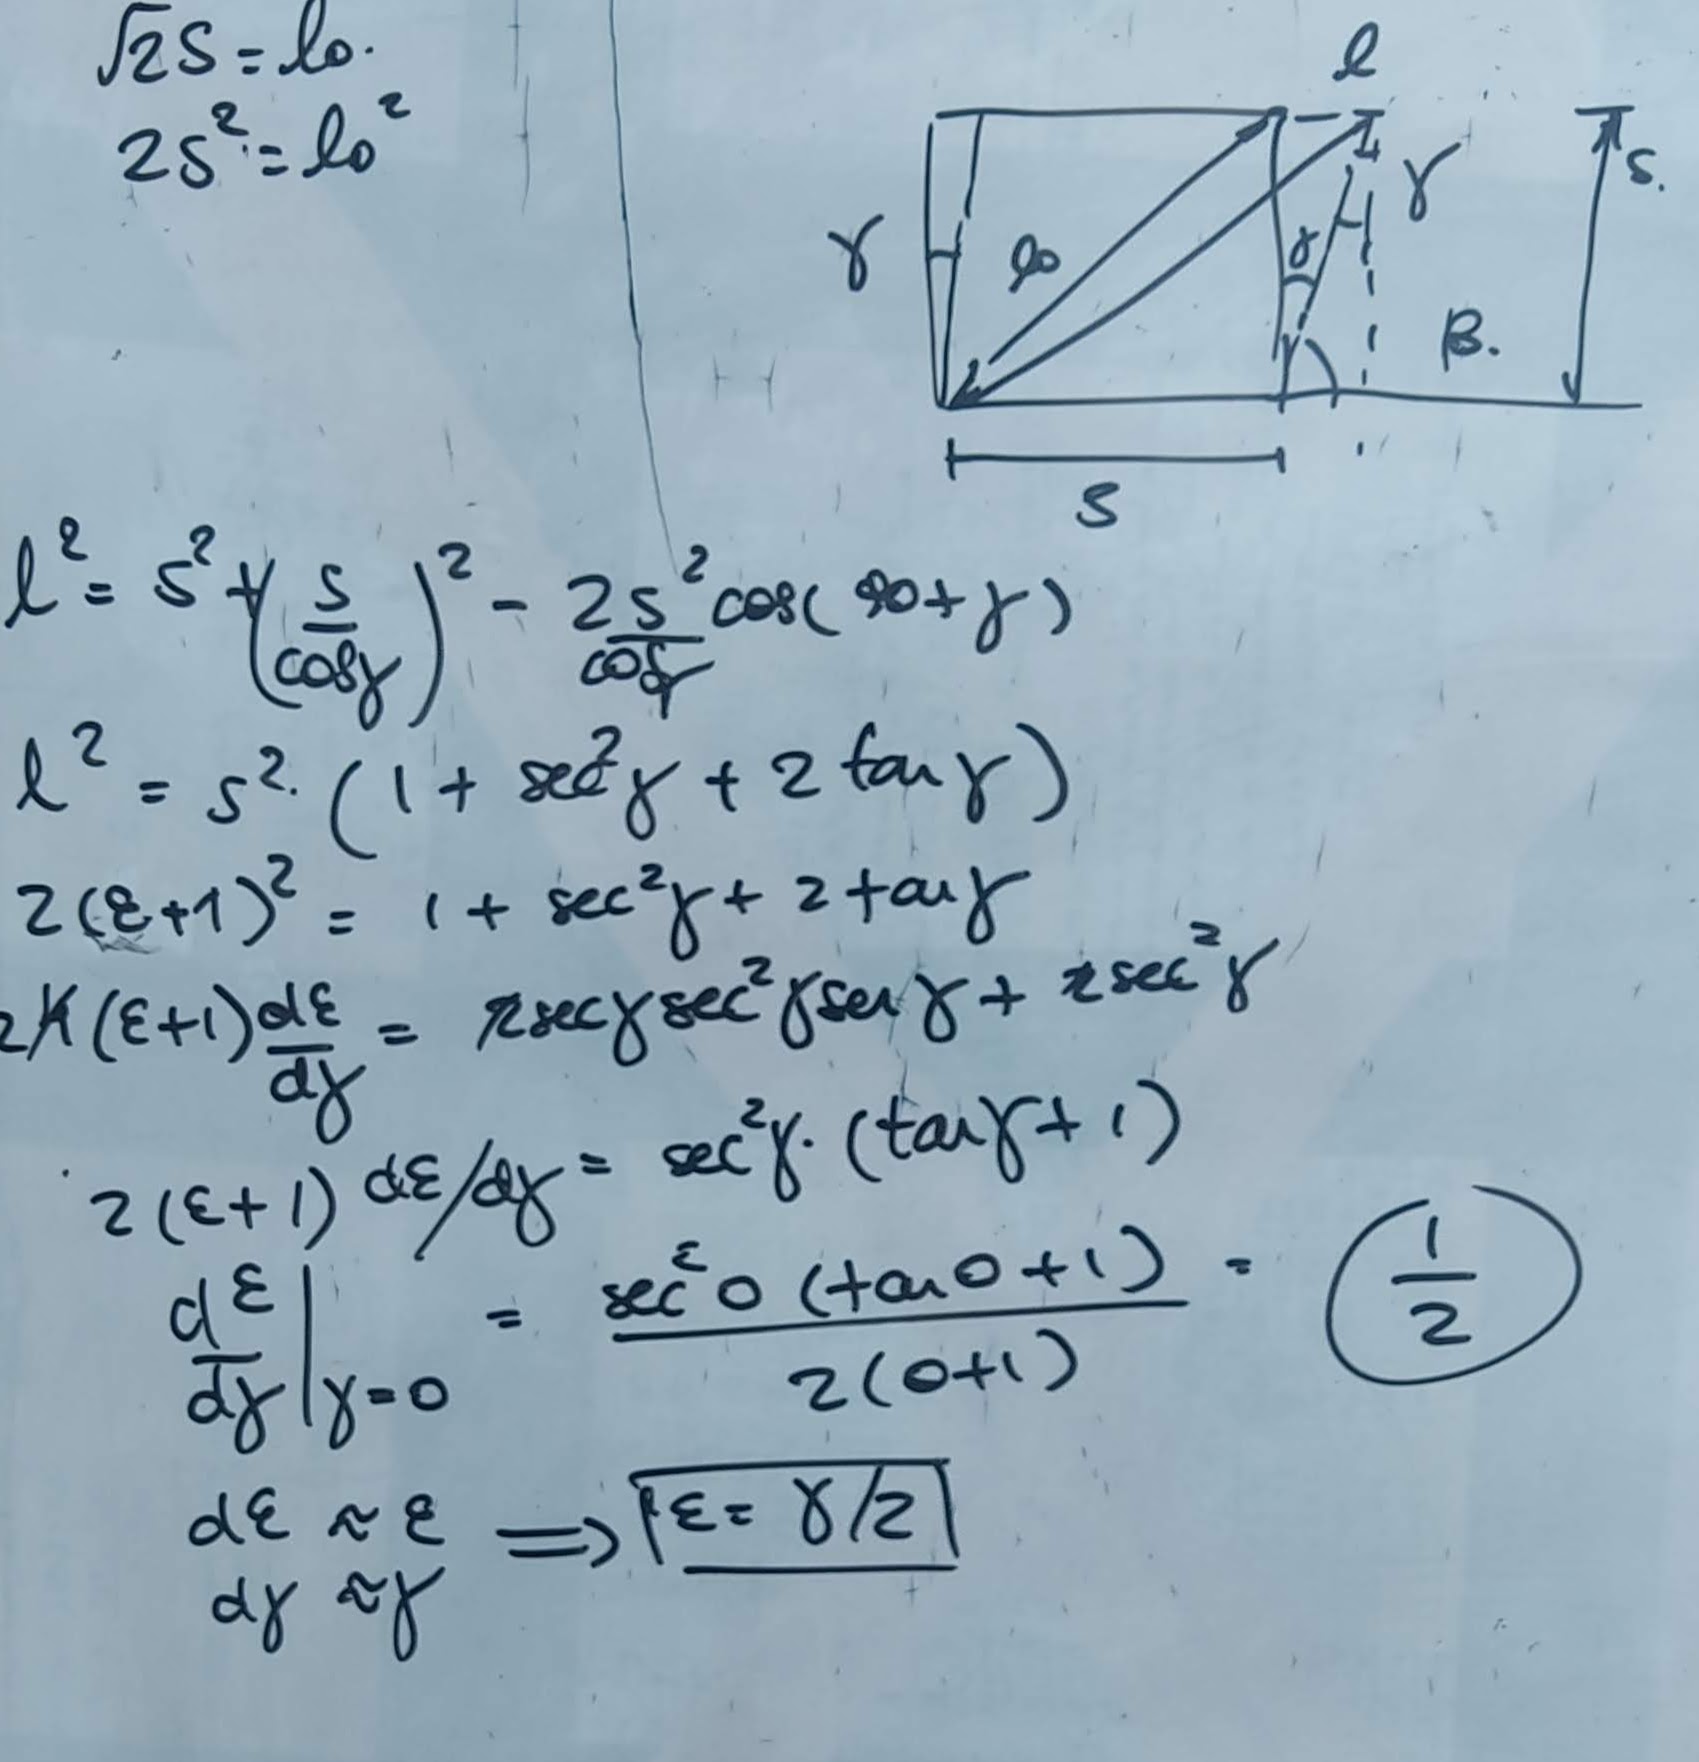 √2S = lo.
2S² = lo²
l
S.
γ
γ
lo
γ
β.
S
l² = S² + (S/cosγ)² - 2S²/cosγ cos(90+γ)
l² = S². (1 + sec²γ + 2 tanγ)
2(ε+1)² = 1 + sec²γ + 2 tanγ
2 4(ε+1) dε/dγ = 2secγ sec²γ senγ + 2sec²γ
2(ε+1) dε/dγ = sec²γ. (tanγ + 1)
dε/dγ |γ=0 = sec²0 (tan0 + 1) / 2(0+1) = 1/2
dε ≈ ε ⟹ ε = γ/2
dγ ≈ γ